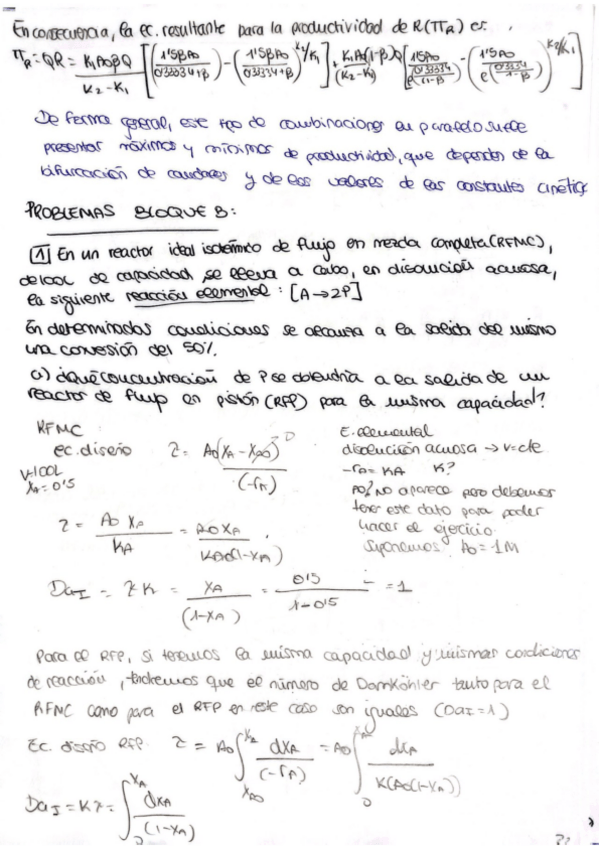 En consecuencia, la ec. resultante para la productividad de R(πR) es:
πR = QR = K1A0βQ / K2-K1 [(1'5βA0 / 0'33334+β) - (1'5βA0 / 0'33334+β)^K2/K1] + K1A0(1-β)Q / (K2-K1) [1'5A0 / e^(0'33334 / 1-β) - (1'5A0 / e^(0'33334 / 1-β))^K2/K1]
De forma general, este tipo de combinaciones en paralelo suele
presentar máximos y mínimos de productividad, que dependen de la
bifurcación de caudales y de los valores de las constantes cinétic
PROBLEMAS BLOQUE B:
1 En un reactor ideal isotérmico de flujo en mezcla completa (RFMC),
de 100L de capacidad se lleva a cabo, en disolución acuosa,
la siguiente reacción elemental: [A→2P]
En determinadas condiciones se alcanza a la salida del mismo
una conversión del 50%.
a) ¿qué concentración de P se obtendría a la salida de un
reactor de flujo en pistón (RFP) para la misma capacidad?
RFMC
ec. diseño τ = A0(XA - XA0)→0 / (-rA)
V=100L
XA = 0'5
E. elemental
disolución acuosa → V=cte
-rA = KA K?
A0? NO aparece pero debemos
tener este dato para poder
hacer el ejercicio.
Suponemos A0 = 1M
τ = A0 XA / KA = A0XA / KA0(1-XA)
DaI = τK = XA / (1-XA) = 0'5 / 1-0'5 = 1
Para el RFP, si tenemos la misma capacidad y mismas condiciones
de reacción, tendremos que el número de Damköhler tanto para el
RFMC como para el RFP en este caso son iguales (DaI = 1)
Ec. diseño RFP. τ = A0 ∫ dXA / (-rA) = A0 ∫ dXA / K(A0(1-XA))
DaI = Kτ = ∫ dXA / (1-XA)